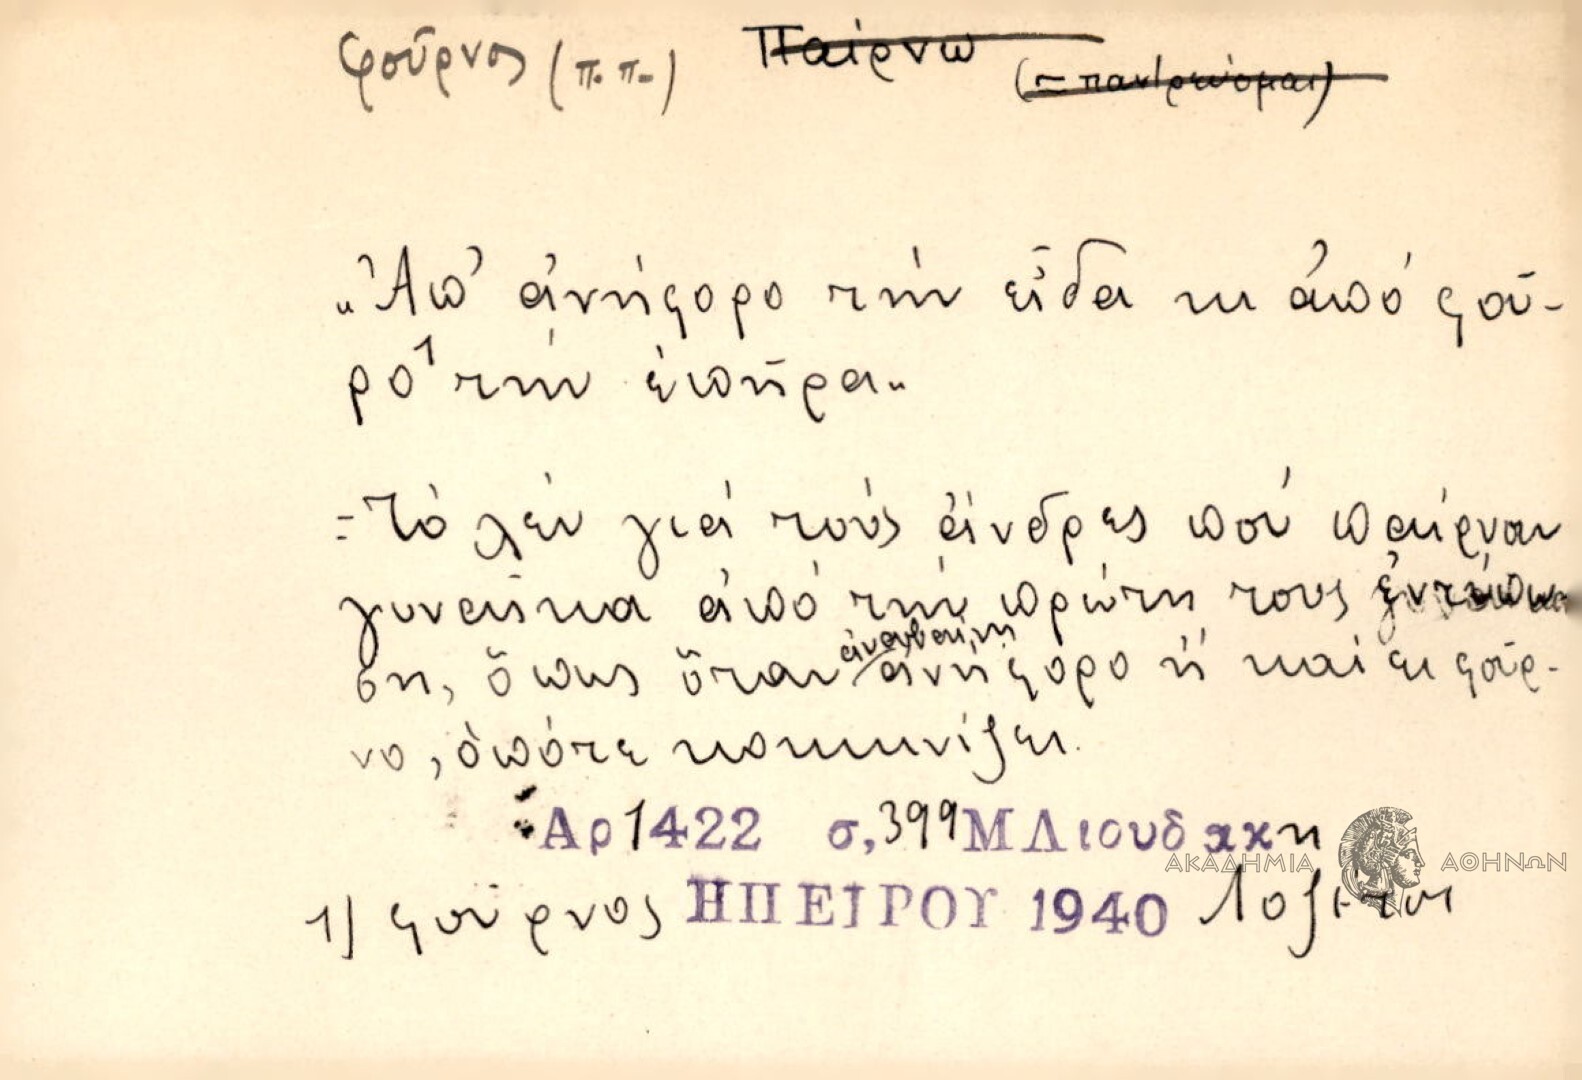 φοῦρνος (π.π.) Παίρνω
(= παντρεύομαι)
„Ἀπ' ἀνήφορο τὴν εἶδα κι ἀπό φοῦ-
ρο¹ τὴν ἐπῆρα„
= Τό λέν γιά τούς ἄνδρες πού παίρνουν
γυναῖκα ἀπό τὴν πρώτη τους ἐντύπω
ση, ὅπως ὅταν ἀνεβαίνη ἀνήφορο ἤ καίει φοῦρ-
νο, ὁπότε κοκκινίζει.
Αρ 1422 σ, 399 Μ Λιουδακη
1) φοῦρνος ΗΠΕΙΡΟΥ 1940
ΑΚΑΔΗΜΙΑ ΑΘΗΝΩΝ